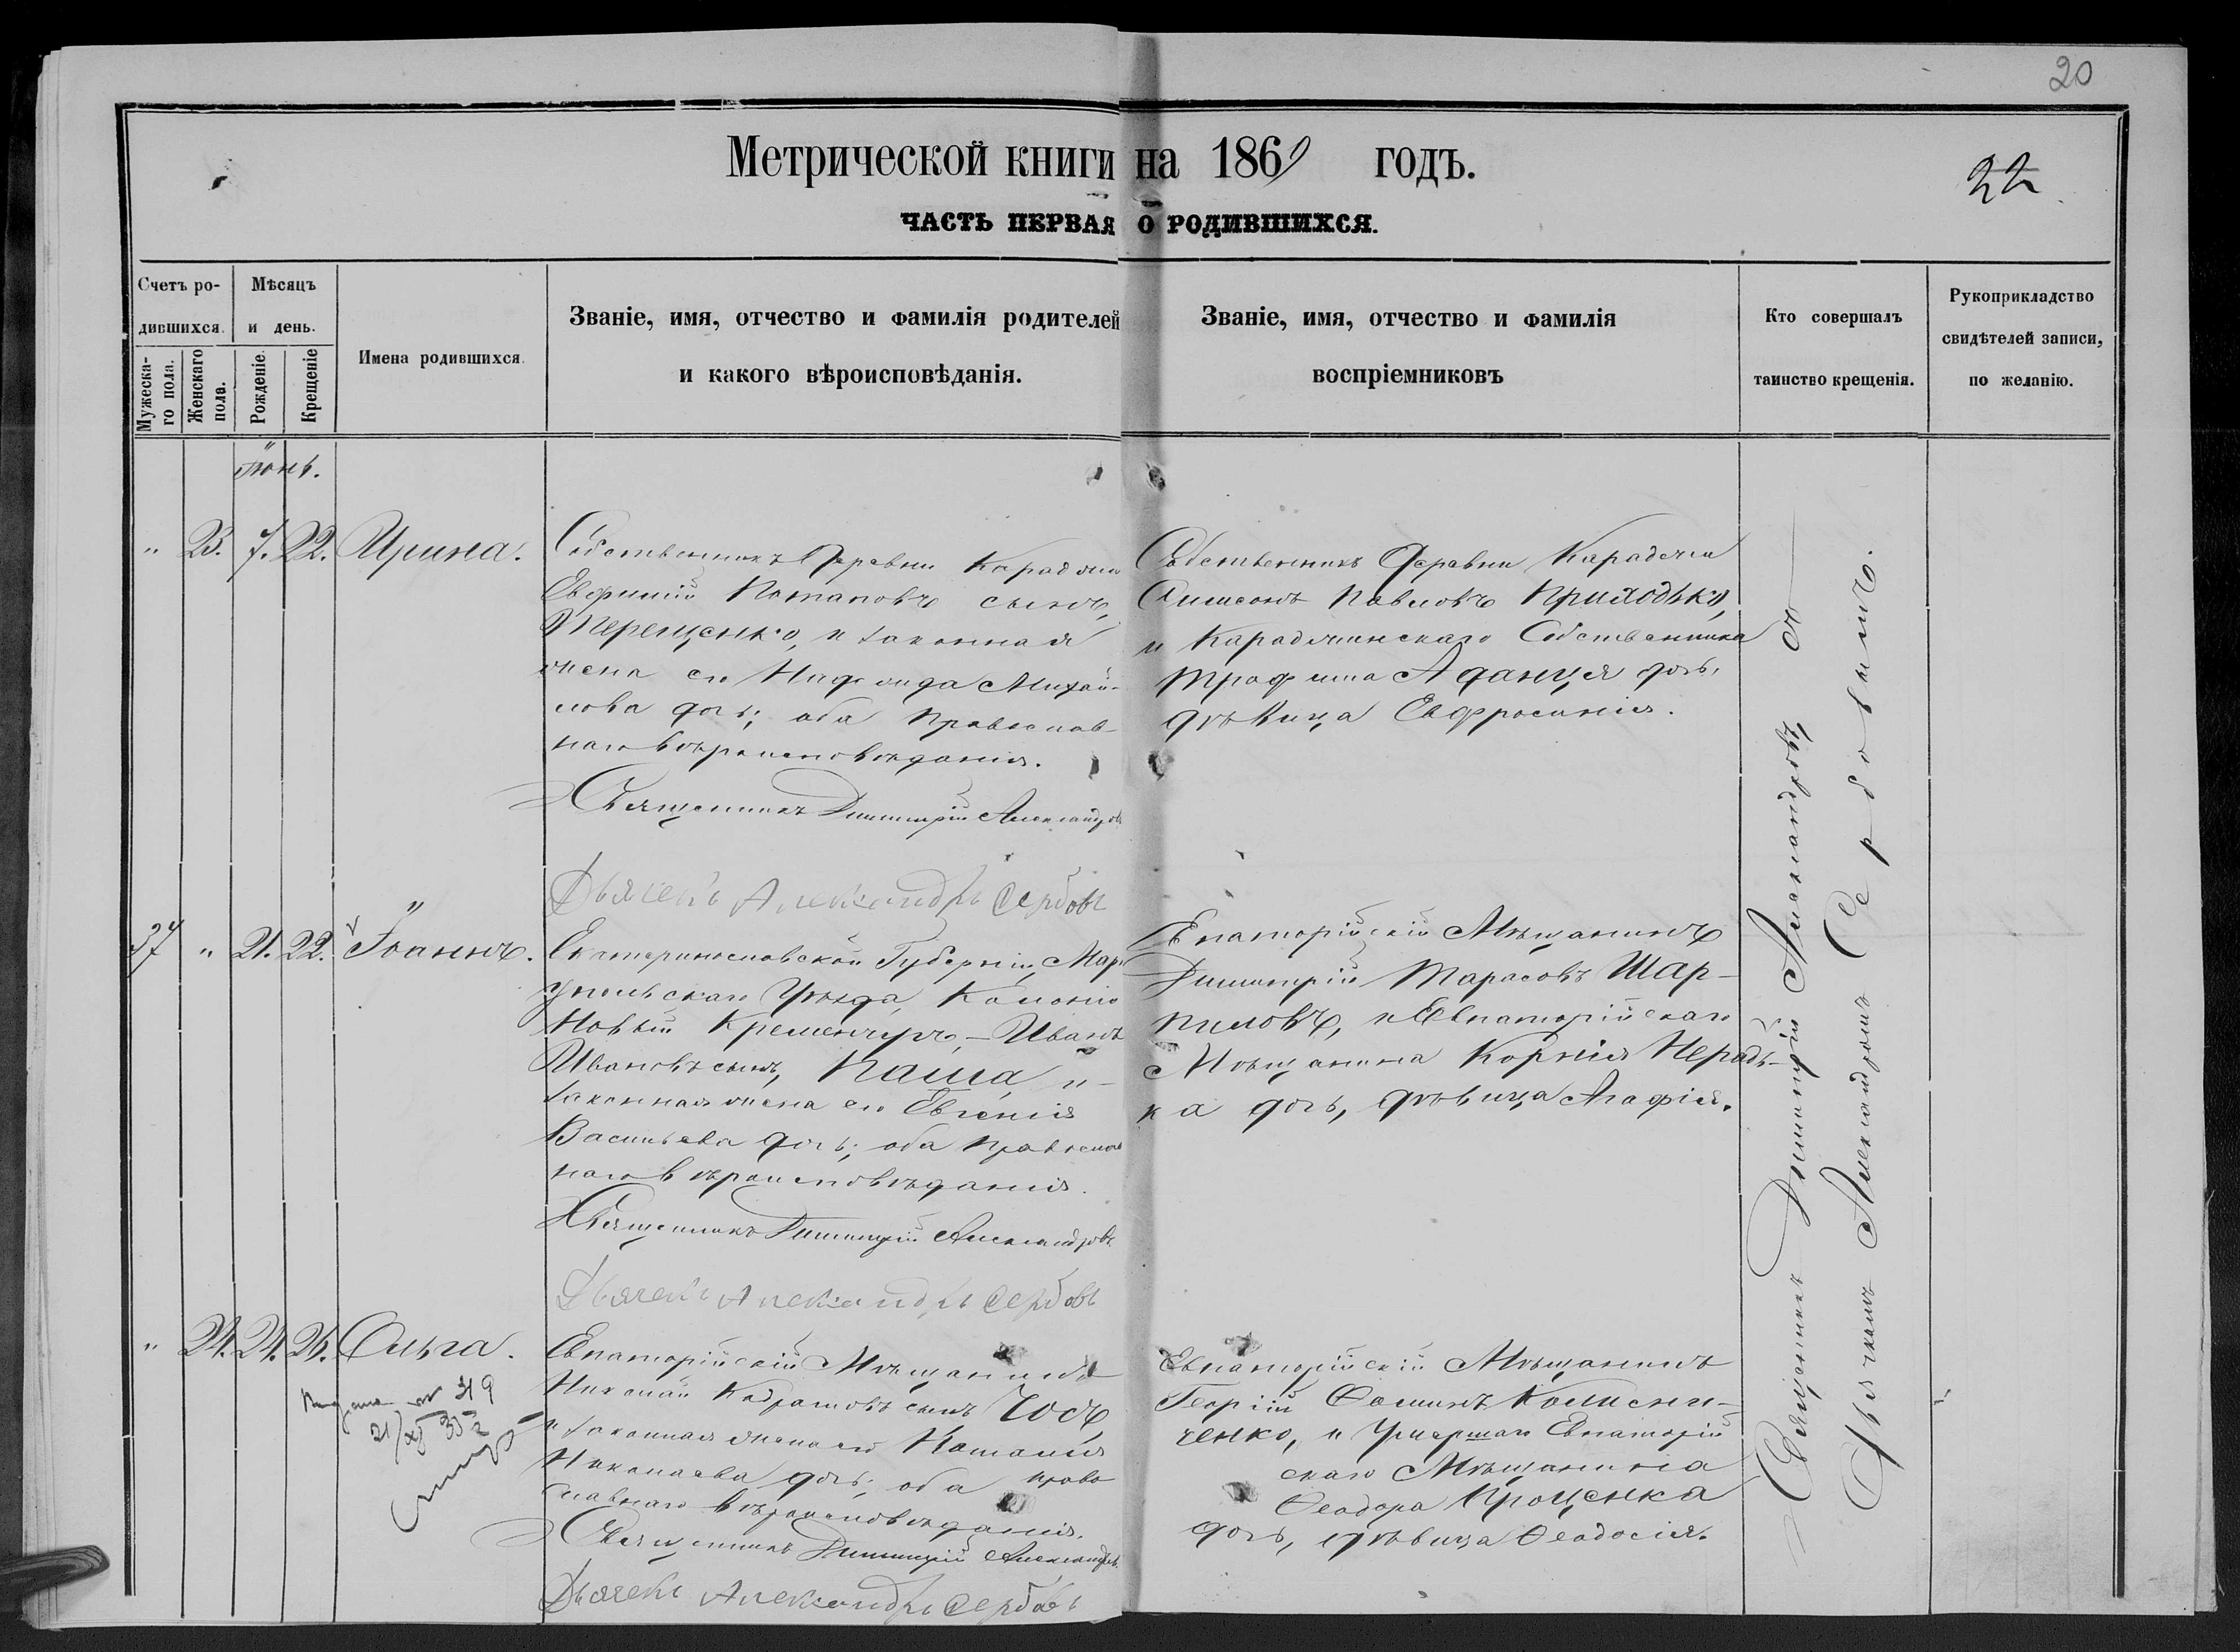 20
Метрической книги на 1869 годъ.
22
ЧАСТЬ ПЕРВАЯ О РОДИВШИХСЯ.
Счетъ ро-
дившихся.
Мѣсяцъ
и день.
Мужеска-
го пола.
Женскаго
пола.
Рожденіе.
Крещеніе
Имена родившихся.
Званіе, имя, отчество и фамилія родителей
и какого вѣроисповѣданія.
Званіе, имя, отчество и фамилія
воспріемниковъ
Кто совершалъ
таинство крещенія.
Рукоприкладство
свидѣтелей записи,
по желанію.
Іюнь.
" 23. 7. 22. Ирина.
Собственникъ Деревни Караджи
Евфимій Потаповъ сынъ,
Терещенко, и законная
жена его Надежда Михай-
лова дочь; оба православ-
наго вѣроисповѣданія.
Священникъ Димитрій Александровъ
Дьячекъ Александръ Сербовъ
Собственникъ Деревни Караджи
Симеонъ Павловъ Приходько,
и Караджинскаго Собственника
Трафима Аданця дочь,
дѣвица Евфросинія.
37 " 21. 22. Іоаннъ.
Екатеринославской Губерніи, Мар
упольскаго Уѣзда, Колоніи
Новый Кременчугъ,- Иванъ
Ивановъ сынъ, Паша, и-
законная жена его Евгенія
Васильева дочь; оба православ
наго вѣроисповѣданія.
Священникъ Димитрій Александровъ
Дьячекъ Александръ Сербовъ
Евпаторійскій Мѣщанинъ
Димитрій Тарасовъ Шар-
пиловъ, и Евпаторійскаго
Мѣщанина Корнія Нерадь-
ка дочь, дѣвица Агафія.
" 24. 24. 26. Ольга.
Евпаторійскій Мѣщанинъ
Николай Кодратовъ сынъ Чосъ
и законная жена его Наталія
Николаева дочь; оба право
славнаго вѣроисповѣданія.
Священникъ Димитрій Александровъ
Дьячекъ Александръ Сербовъ
Евпаторійскій Мѣщанинъ
Георгій Ѳоминъ Колисни-
ченко, и Умершаго Евпаторій
скаго Мѣщанина
Ѳеодора Проценка
дочь, дѣвица Ѳеодосія.
Священникъ Димитрій Александровъ, съ
Дьячкомъ Александромъ Сербовымъ.